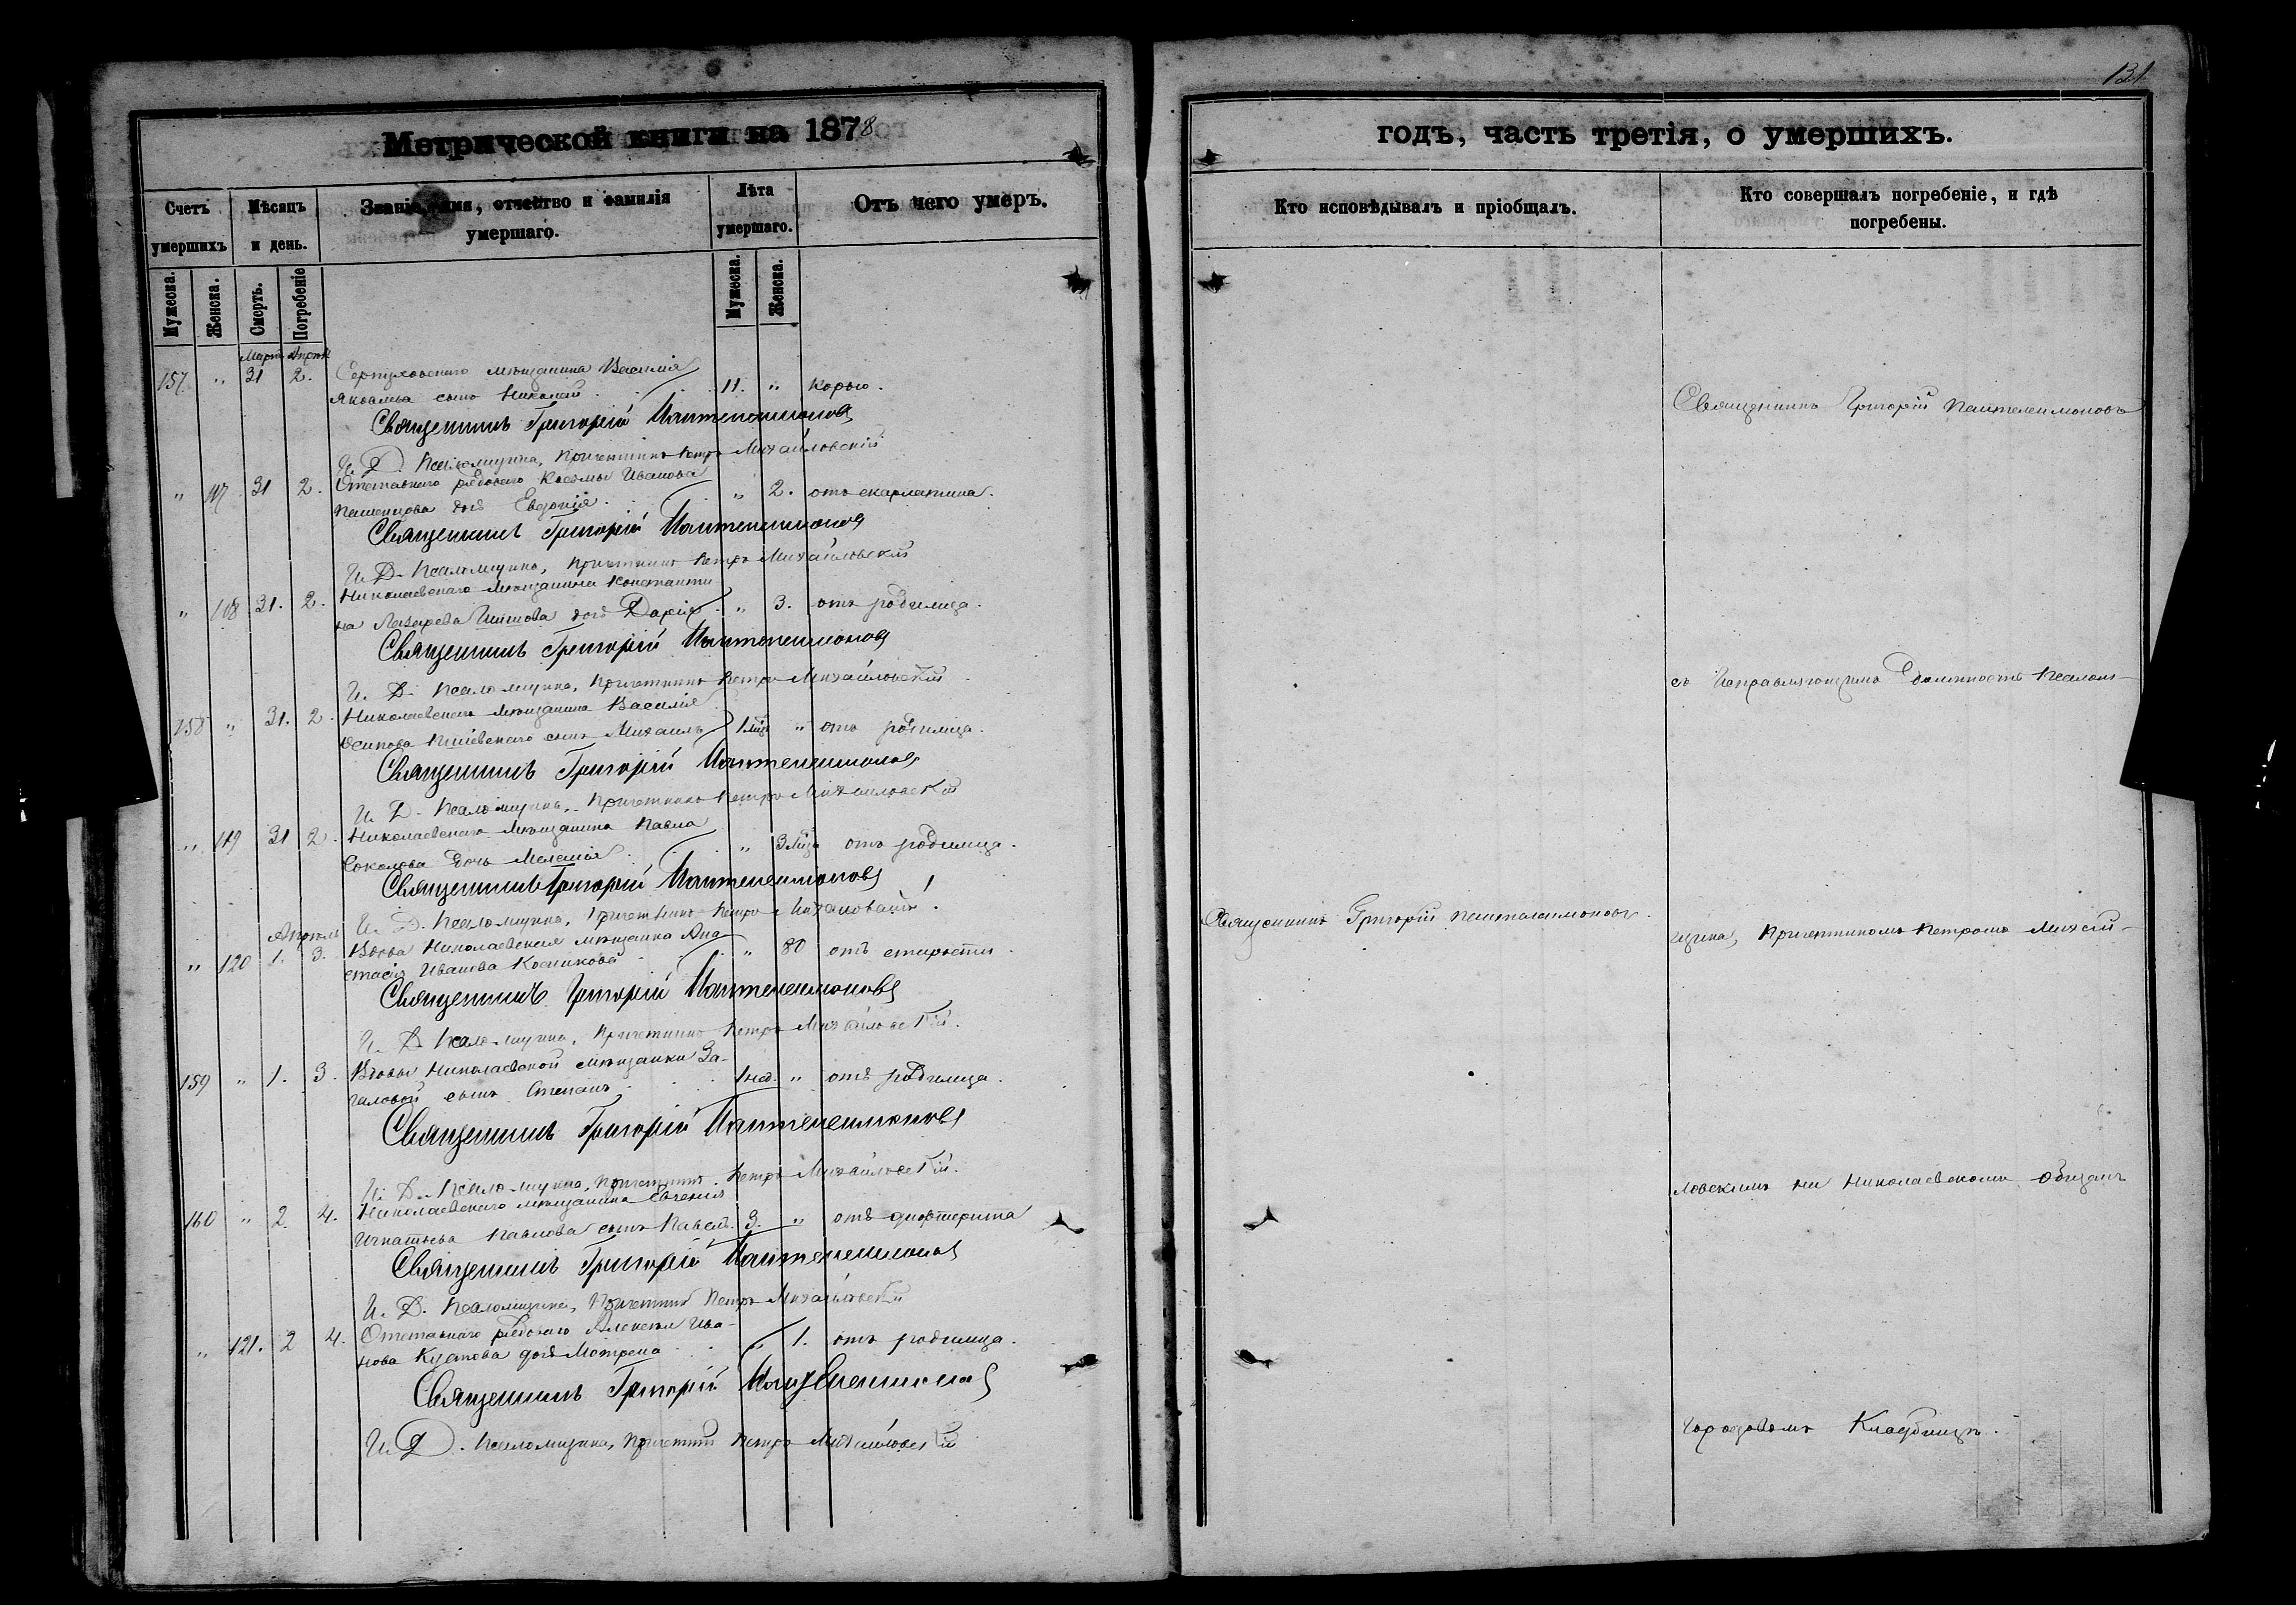 131
Метрической книги на 1878
годъ, часть третія, о умершихъ.
Счетъ умершихъ
Мѣсяцъ и день.
Званіе, имя, отчество и фамилія умершаго.
Лѣта умершаго.
Отъ чего умеръ.
Кто исповѣдывалъ и пріобщалъ.
Кто совершалъ погребеніе, и гдѣ погребены.
Мужеска. Женска. Смерть. Погребеніе
Мужеска. Женска.
Мартъ Апрѣль
157. " 31 2. Серпуховскаго мѣщанина Василія
Яковлева сынъ Николай. 11. " Корью.
Священникъ Григорій Пантелеимоновъ
И. Д. Псаломщика, Причетникъ Петръ Михайловскій
" 117 31 2. Отставнаго рядоваго Косьмы Иванова
дочь Евдокія. " 2. отъ скарлатина.
Священникъ Григорій Пантелеимоновъ
И. Д. Псаломщика, Причетникъ Петръ Михайловскій
" 118 31. 2. Николаевскаго мѣщанина Константи
на Лазарева дочь Дарія " 3. отъ родимца.
Священникъ Григорій Пантелеимоновъ
И. Д. Псаломщика, Причетникъ Петръ Михайловскій
158 " 31. 2. Николаевскаго мѣщанина Василія
Осипова сынъ Михаилъ 1 мѣц " отъ родимца.
Священникъ Григорій Пантелеимоновъ
И. Д. Псаломщика, Причетникъ Петръ Михайловскій
" 119 31 2. Николаевскаго мѣщанина Павла
Соколова дочь Меланія " 3 мѣца отъ родимца.
Священникъ Григорій Пантелеимоновъ
И. Д. Псаломщика, Причетникъ Петръ Михайловскій
Апрѣль
" 120 1. 3. Вдова Николаевская мѣщанка Ана
стасія Иванова " 80 отъ старости.
Священникъ Григорій Пантелеимоновъ
И. Д. Псаломщика, Причетникъ Петръ Михайловскій.
159 " 1. 3. Вдовы Николаевской мѣщанки За-
галовой сынъ Степанъ 1 нед. " отъ родимца.
Священникъ Григорій Пантелеимоновъ
И. Д. Псаломщика, Причетникъ Петръ Михайловскій.
160 " 2 4. Николаевскаго мѣщанина Евгенія
Игнатьева Павлова сынъ Павелъ. 3. " отъ дифтерита
Священникъ Григорій Пантелеимоновъ
И. Д. Псаломщика, Причетникъ Петръ Михайловскій
" 121. 2 4. Отставнаго рядоваго Алексѣя Ива-
нова дочь Матрена " 1. отъ родимца.
Священникъ Григорій Пантелеимоновъ
И. Д. Псаломщика, Причетникъ Петръ Михайловскій
Священникъ Григорій Пантелеимоновъ.
Священникъ Григорій Пантелеимоновъ
съ Исправляющимъ Должность Псалом-
щика, Причетникомъ Петромъ Михай-
ловскимъ на Николаевскомъ общемъ
городовомъ Кладбищѣ.